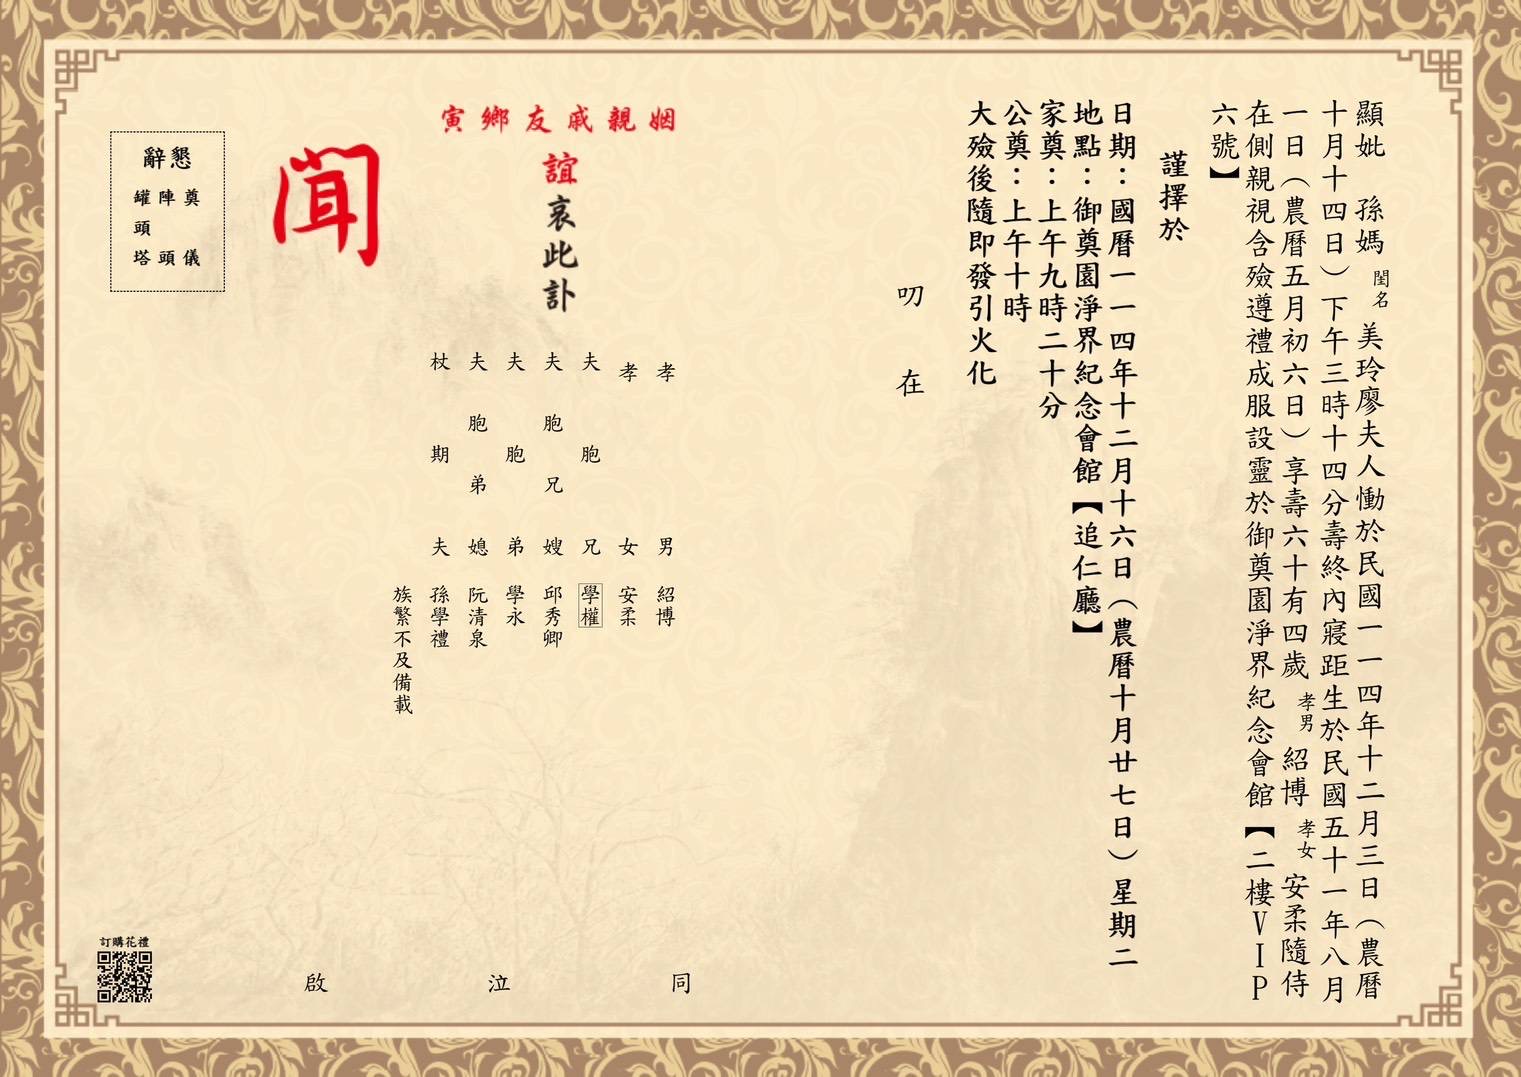 顯妣 孫媽 閨名 美玲廖夫人慟於民國一一四年十二月三日（農曆
十月十四日）下午三時十四分壽終內寢距生於民國五十一年八月
一日（農曆五月初六日）享壽六十有四歲 孝男 紹博 孝女 安柔隨侍
在側親視含殮遵禮成服設靈於御奠園淨界紀念會館【二樓VIP
六號】
謹擇於
日期：國曆一一四年十二月十六日（農曆十月廿七日）星期二
地點：御奠園淨界紀念會館【追仁廳】
家奠：上午九時二十分
公奠：上午十時
大殮後隨即發引火化
叨在
姻親戚友鄉寅
誼哀此訃
聞
孝男 紹博
孝女 安柔
夫胞兄 學權
夫胞兄嫂 邱秀卿
夫胞弟 學永
夫胞弟媳 阮清泉
杖期夫 孫學禮
族繁不及備載
同泣啟
懇辭
奠儀
陣頭
罐頭塔
訂購花禮